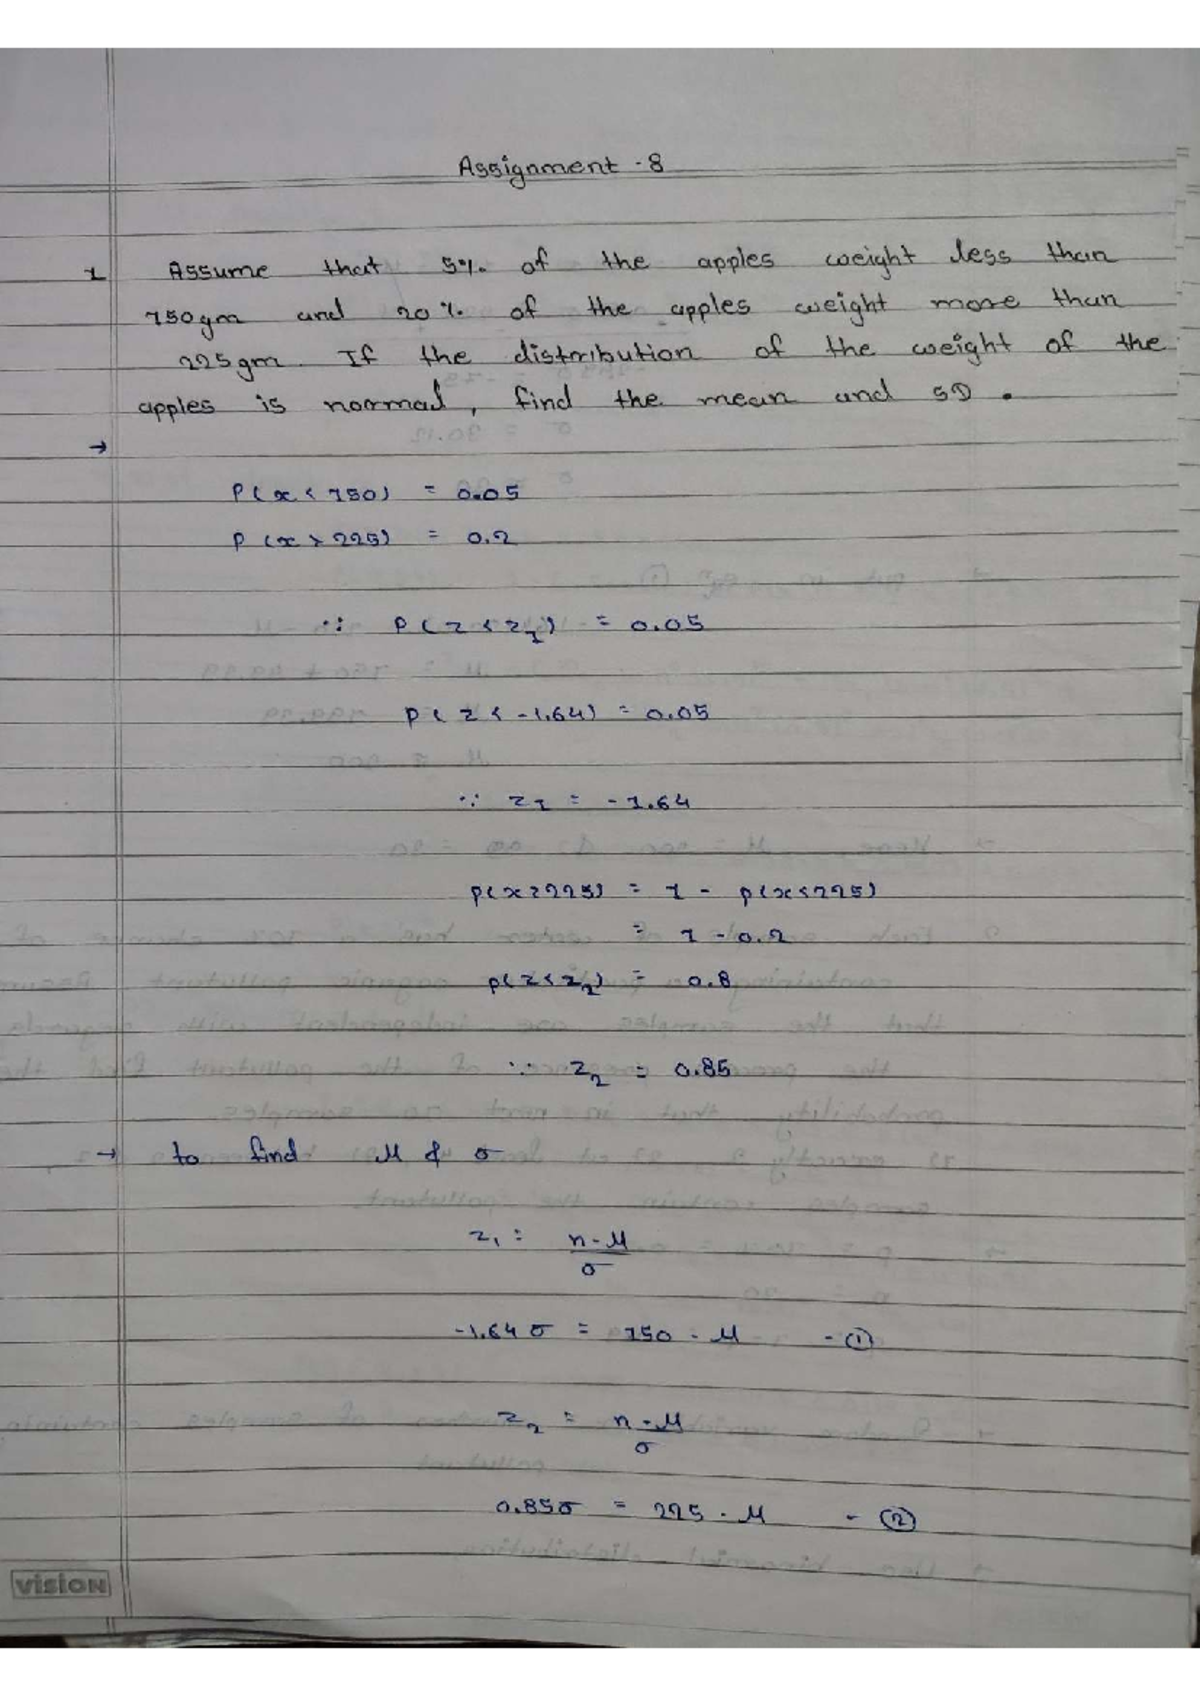 Assignment - 8
1 Assume that 5% of the apples weight less than
150gm and 20% of the apples weight more than
225gm. If the distribution of the weight of the
apples is normal, find the mean and SD.
→
P(x < 150) = 0.05
P(x > 225) = 0.2
∵ P(z < z1) = 0.05
P(z < -1.64) = 0.05
∵ z1 = -1.64
P(x > 225) = 1 - P(x < 225)
= 1 - 0.2
P(z < z2) = 0.8
∵ z2 = 0.85
→ to find μ & σ
z1 = n - μ / σ
-1.64 σ = 150 - μ - ①
z2 = n - μ / σ
0.85σ = 225 - μ - ②
vision